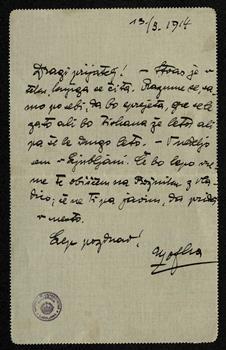 13/3. 1914
Dragi prijatelj! – Stvar je v
tisku, knjiga se čita. Razume se sa-
mo po sebi, da bo sprejeta, gre se le
za to ali bo tiskana že letos ali
pa še le drugo leto. – V nedeljo
sem v Ljubljani. Če bo lepo vre-
me te obiščem na Rožniku z Vla-
dico; če ne ti pa javim, da prideš
v mesto.
Lep pozdrav!